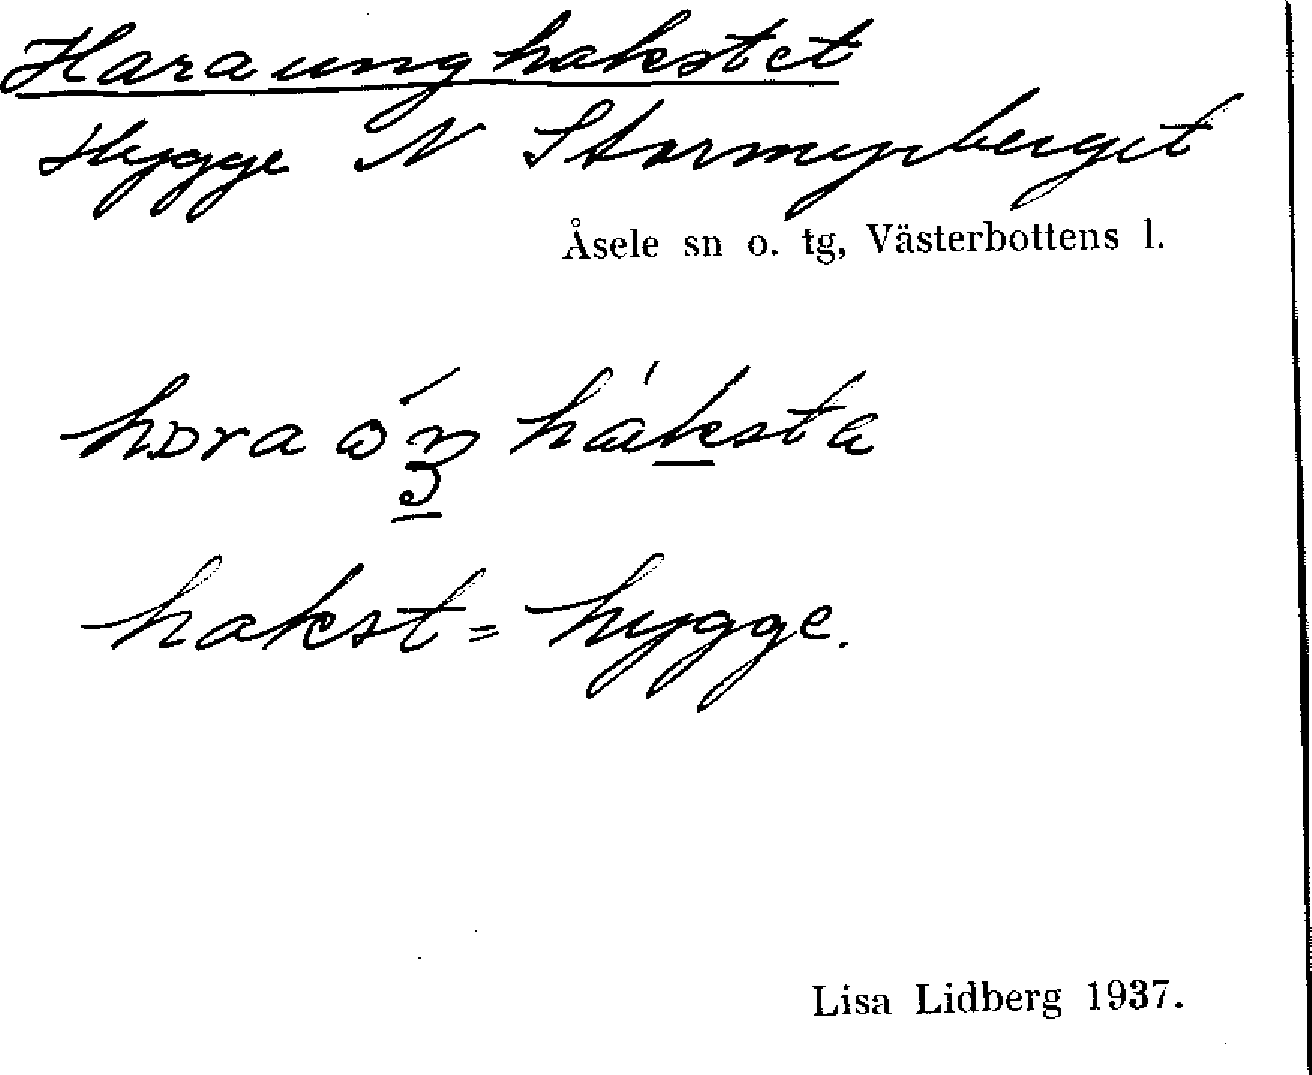 Haraunghakstet
Hygge N Stormyrberget
Åsele sn o. tg, Västerbottens l.
håksta
hakst = hygge.
Lisa Lidberg 1937.